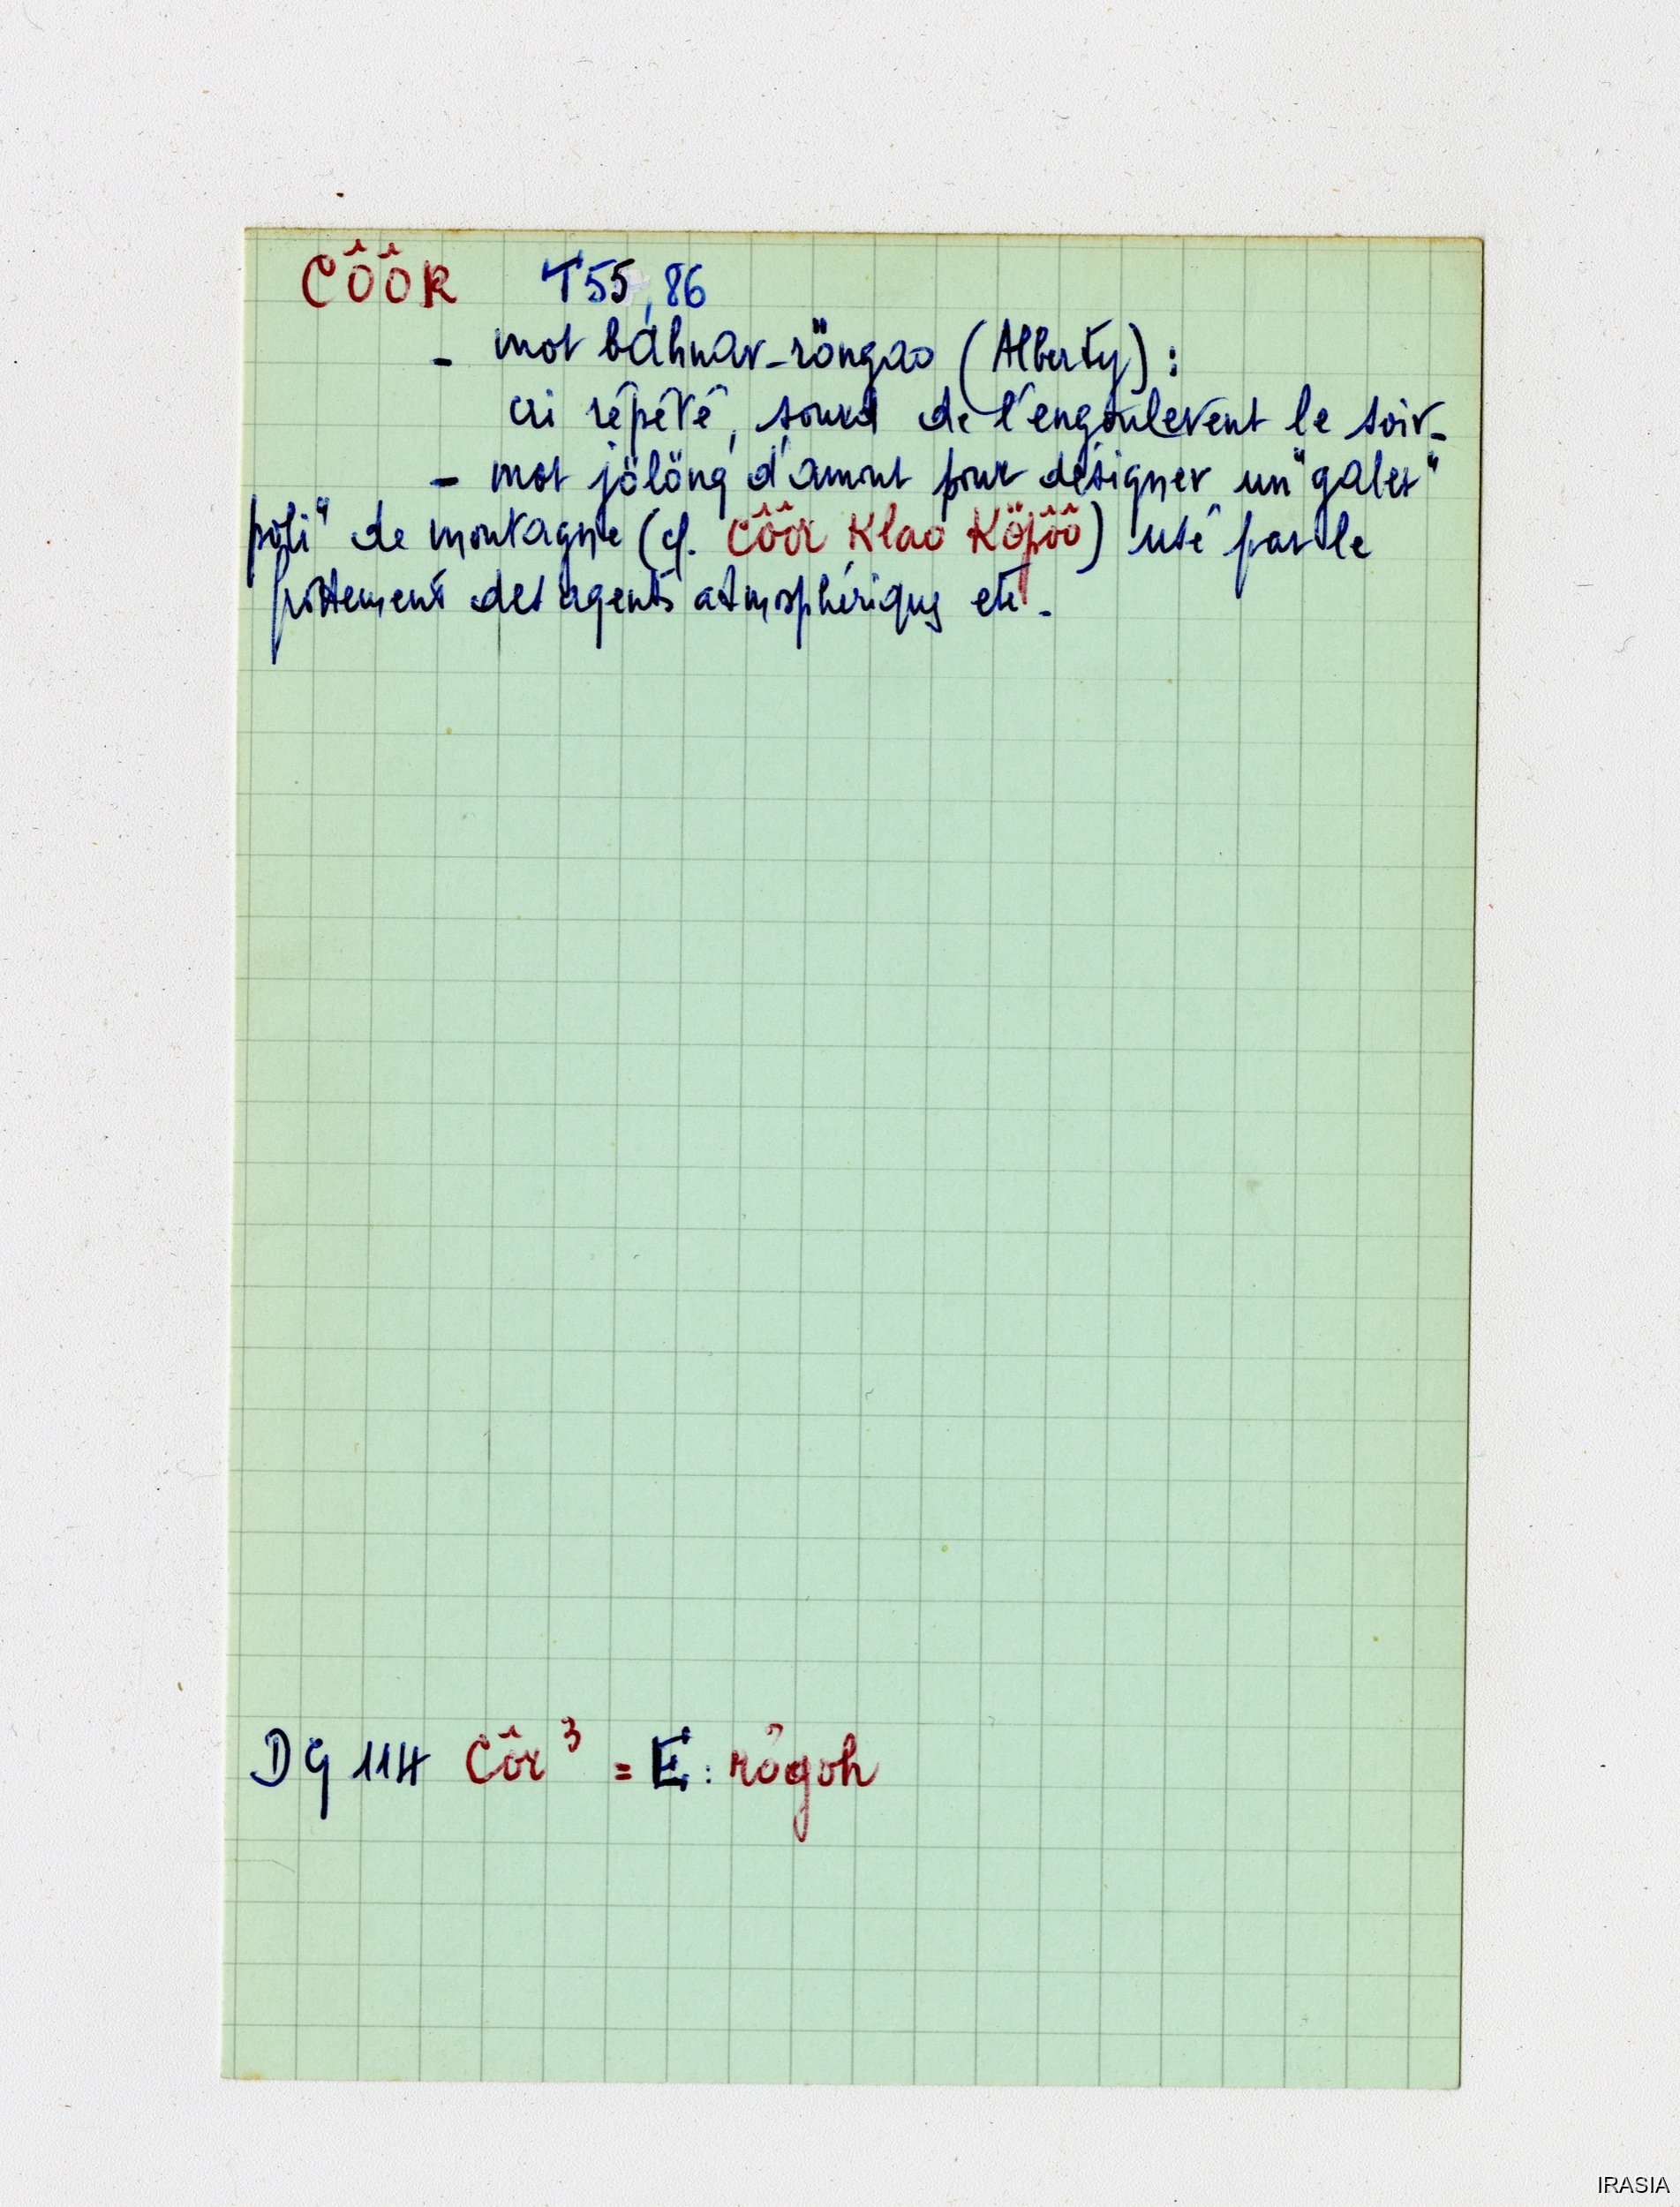 CÔÔR T55, 86
- mot bahnar-röngao (Alberty) :
cri répété, sourd de l'engoulevent le soir -
- mot jölöng d'amont pour désigner un "galet
poli" de montagne (cf. CÔÔR Klao Köpôô) usé par le
frottement des agents atmosphériques etc.
DG 114 Côr³ = E : rögoh
IRASIA